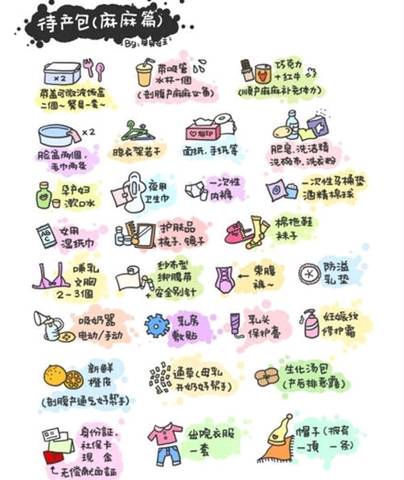 待产包(麻麻篇)
By:
×2
带盖可微波饭盒
二个~餐具一套~
带吸管
水杯一个
(剖腹产麻麻必备)
巧克力
+红牛
(顺产麻麻补充体力)
×2
脸盆两个,
毛巾两条
晾衣架若干
面纸.手纸等
肥皂.洗洁精
洗碗布.洗衣粉
孕产妇
漱口水
夜用
卫生巾
一次性
内裤
一次性马桶垫
酒精棉球
女用
湿纸巾
护肤品
梳子.镜子
棉拖鞋
袜子
哺乳
文胸
2-3個
纱布型
绑腹带
+安全别针
束腹
裤~
防溢
乳垫
吸奶器
电动/手动
乳房
敷贴
乳头
保护套
妊娠纹
修护霜
新鲜
橙皮
(剖腹产通气好帮手)
通草(母乳
开奶好帮手)
生化汤包
(产后排恶露)
身份証.
社保卡
现金
无偿献血証
出院衣服
一套
帽子(披肩
一頂 一条)